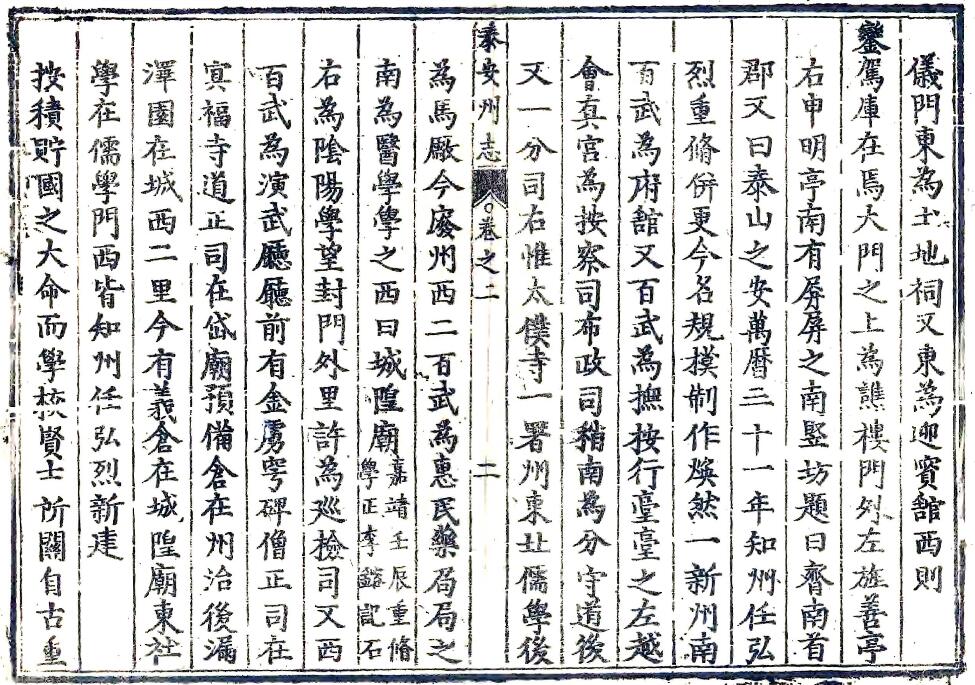 儀門東為土地祠又東為迎賓舘西則
鑾駕庫在焉大門之上為譙樓門外左旌善亭
右申明亭南有屏屏之南竪坊題曰齊南首
郡又曰泰山之安萬曆三十一年知州任弘
烈重脩併更今名規摸制作煥然一新州南
百武為府舘又百武為撫按行臺臺之左越
會真宮為按察司布政司稍南為分守道後
又一分司右惟太僕寺一署州東北儒學後
泰安州志 卷之二 二
為馬厰今廢州西二百武為惠民藥局局之
南為醫學學之西曰城隍廟嘉靖壬辰重脩學正李 記石
右為陰陽學望封門外里許為廵檢司又西
百武為演武廳廳前有金勇穹碑僧正司在
冥福寺道正司在岱廟預備倉在州治後漏
澤園在城西二里今有義倉在城隍廟東社
學在儒學門西皆知州任弘烈新建
按積貯國之大命而學校賢士所關自古重